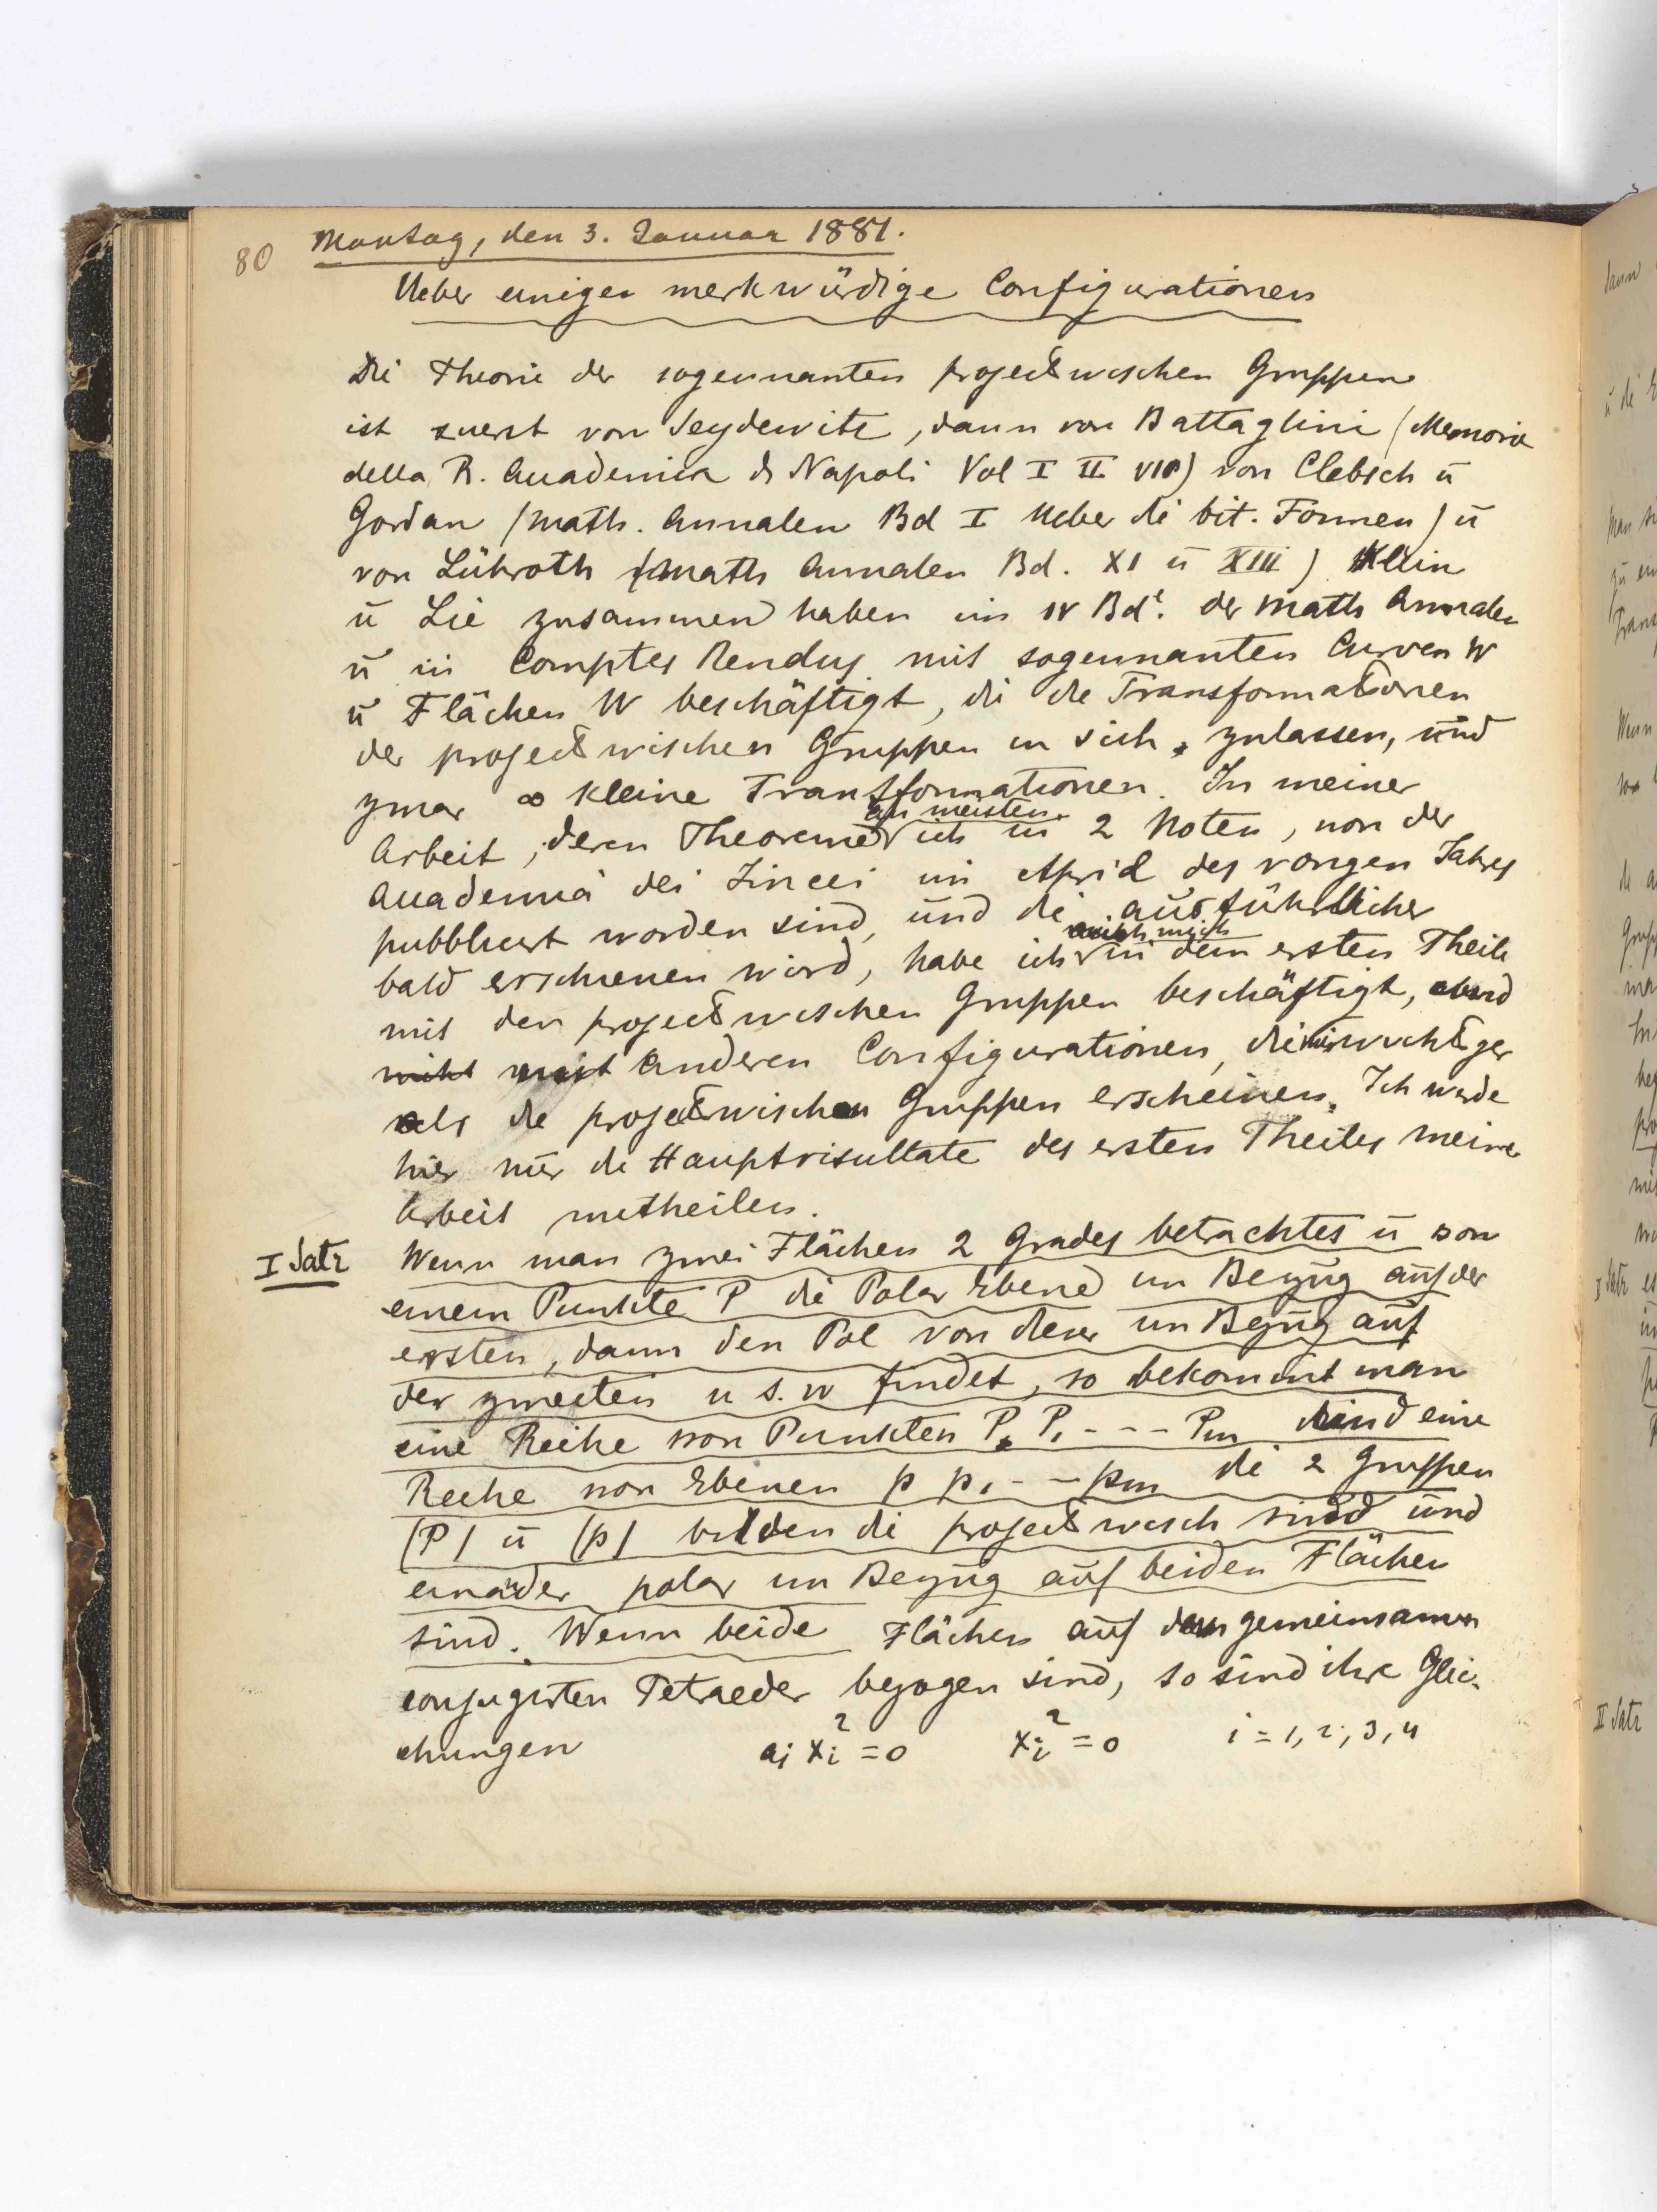 80
Montag, den 3. Januar 1881.
Ueber einigen merkwürdige Configurationen
Die Theorie der sogennanten projectivischen Gruppen
ist zuerst von Seydewitz, dann von Battaglini (Memorie
della R. Accademia di Napoli Vol I II VII) von Clebsch ū
Gordan (Math. Annalen Bd I Ueber die bit. Formen) ū
von Lühroth (Math Annalen Bd. XI ū XIII) Klein
ū Lie zusammen haben im IV Bde. der Math Annalen
ū in Comptes Rendus mit sogennanten Curven W
ū Flächen W beschäftigt, die die Transformationen
der projectivischen Gruppen in sich zulassen, und
zwar ∞ kleine Transformationen. In meiner
Arbeit, deren Theoreme am meisten ich in 2 Noten, von der
Accademia dei Lincei im April des vorigen Jahres
pubblicirt worden sind, und die ausführlicher
bald erschienen wird, habe ich mich in dem ersten Theile
mit den projectivischen Gruppen beschäftigt, und
nicht mit anderen Configurationen, die mir wichtiger
als die projectivischen Gruppen erscheinen. Ich werde
hier nur die Hauptrisultate des ersten Theiles meine
Arbeit mitheilen.
I Satz
Wenn man zwei Flächen 2 Grades betrachtes ū von
einem Punkte P die Polar Ebene im Bezug auf der
ersten, dann den Pol von dieser im Bezug auf
der zweiten u s. w findet, so bekommt man
eine Reihe von Punkten P, P1 - - - Pm und eine
Reihe von Ebenen p p1 - - pm die 2 Gruppen
(P) ū (p) bilden die projectivisch sind und
einander polar im Bezug auf beiden Flächen
sind. Wenn beide Flächen auf den gemeinsamen
conjugirten Tetraeder bezogen sind, so sind ihre Glei-
chungen ai xi² = 0 xi² = 0 i = 1, 2, 3, 4